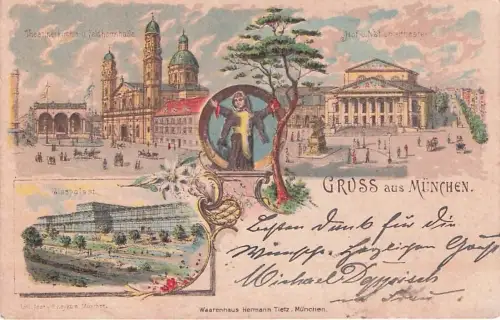 Theatinerkirche u. Feldherrnhalle.
Hof- u. Nationaltheater
GRUSS aus MÜNCHEN.
Glaspalast.
Besten Dank für die
Wünsche. Herzlichen Gruß
Michael
u. Frau
Waarenhaus Hermann Tietz, München.